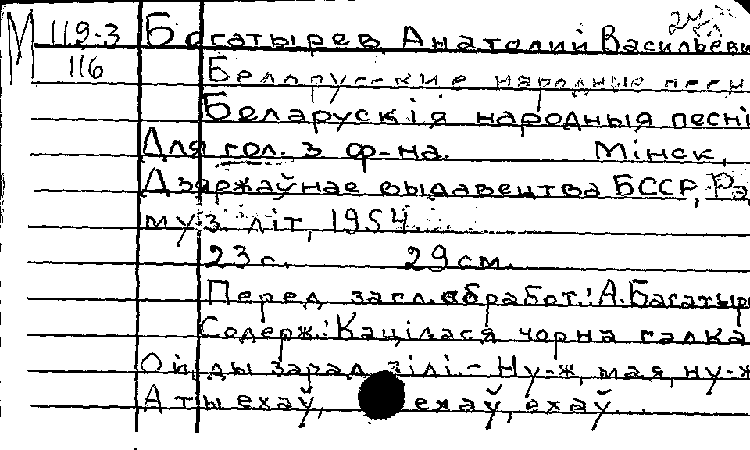 М 119-3 Богатырев, Анатолий Васильеви
116 Белорусские народные песн
Беларускія народныя песні
Для гол. з ф-на. Мінск,
Дзяржаўнае выдавецтва БССР, Рэ
муз. літ, 1954.
23 с. 29 см.
Перед загл. обработ.: А. Багатыр
Содерж.: Кацілася чорна галка
Ой, ды зарад зілі. - Ну-ж, мая, ну-ж
А ты ехаў, ехаў, ехаў...